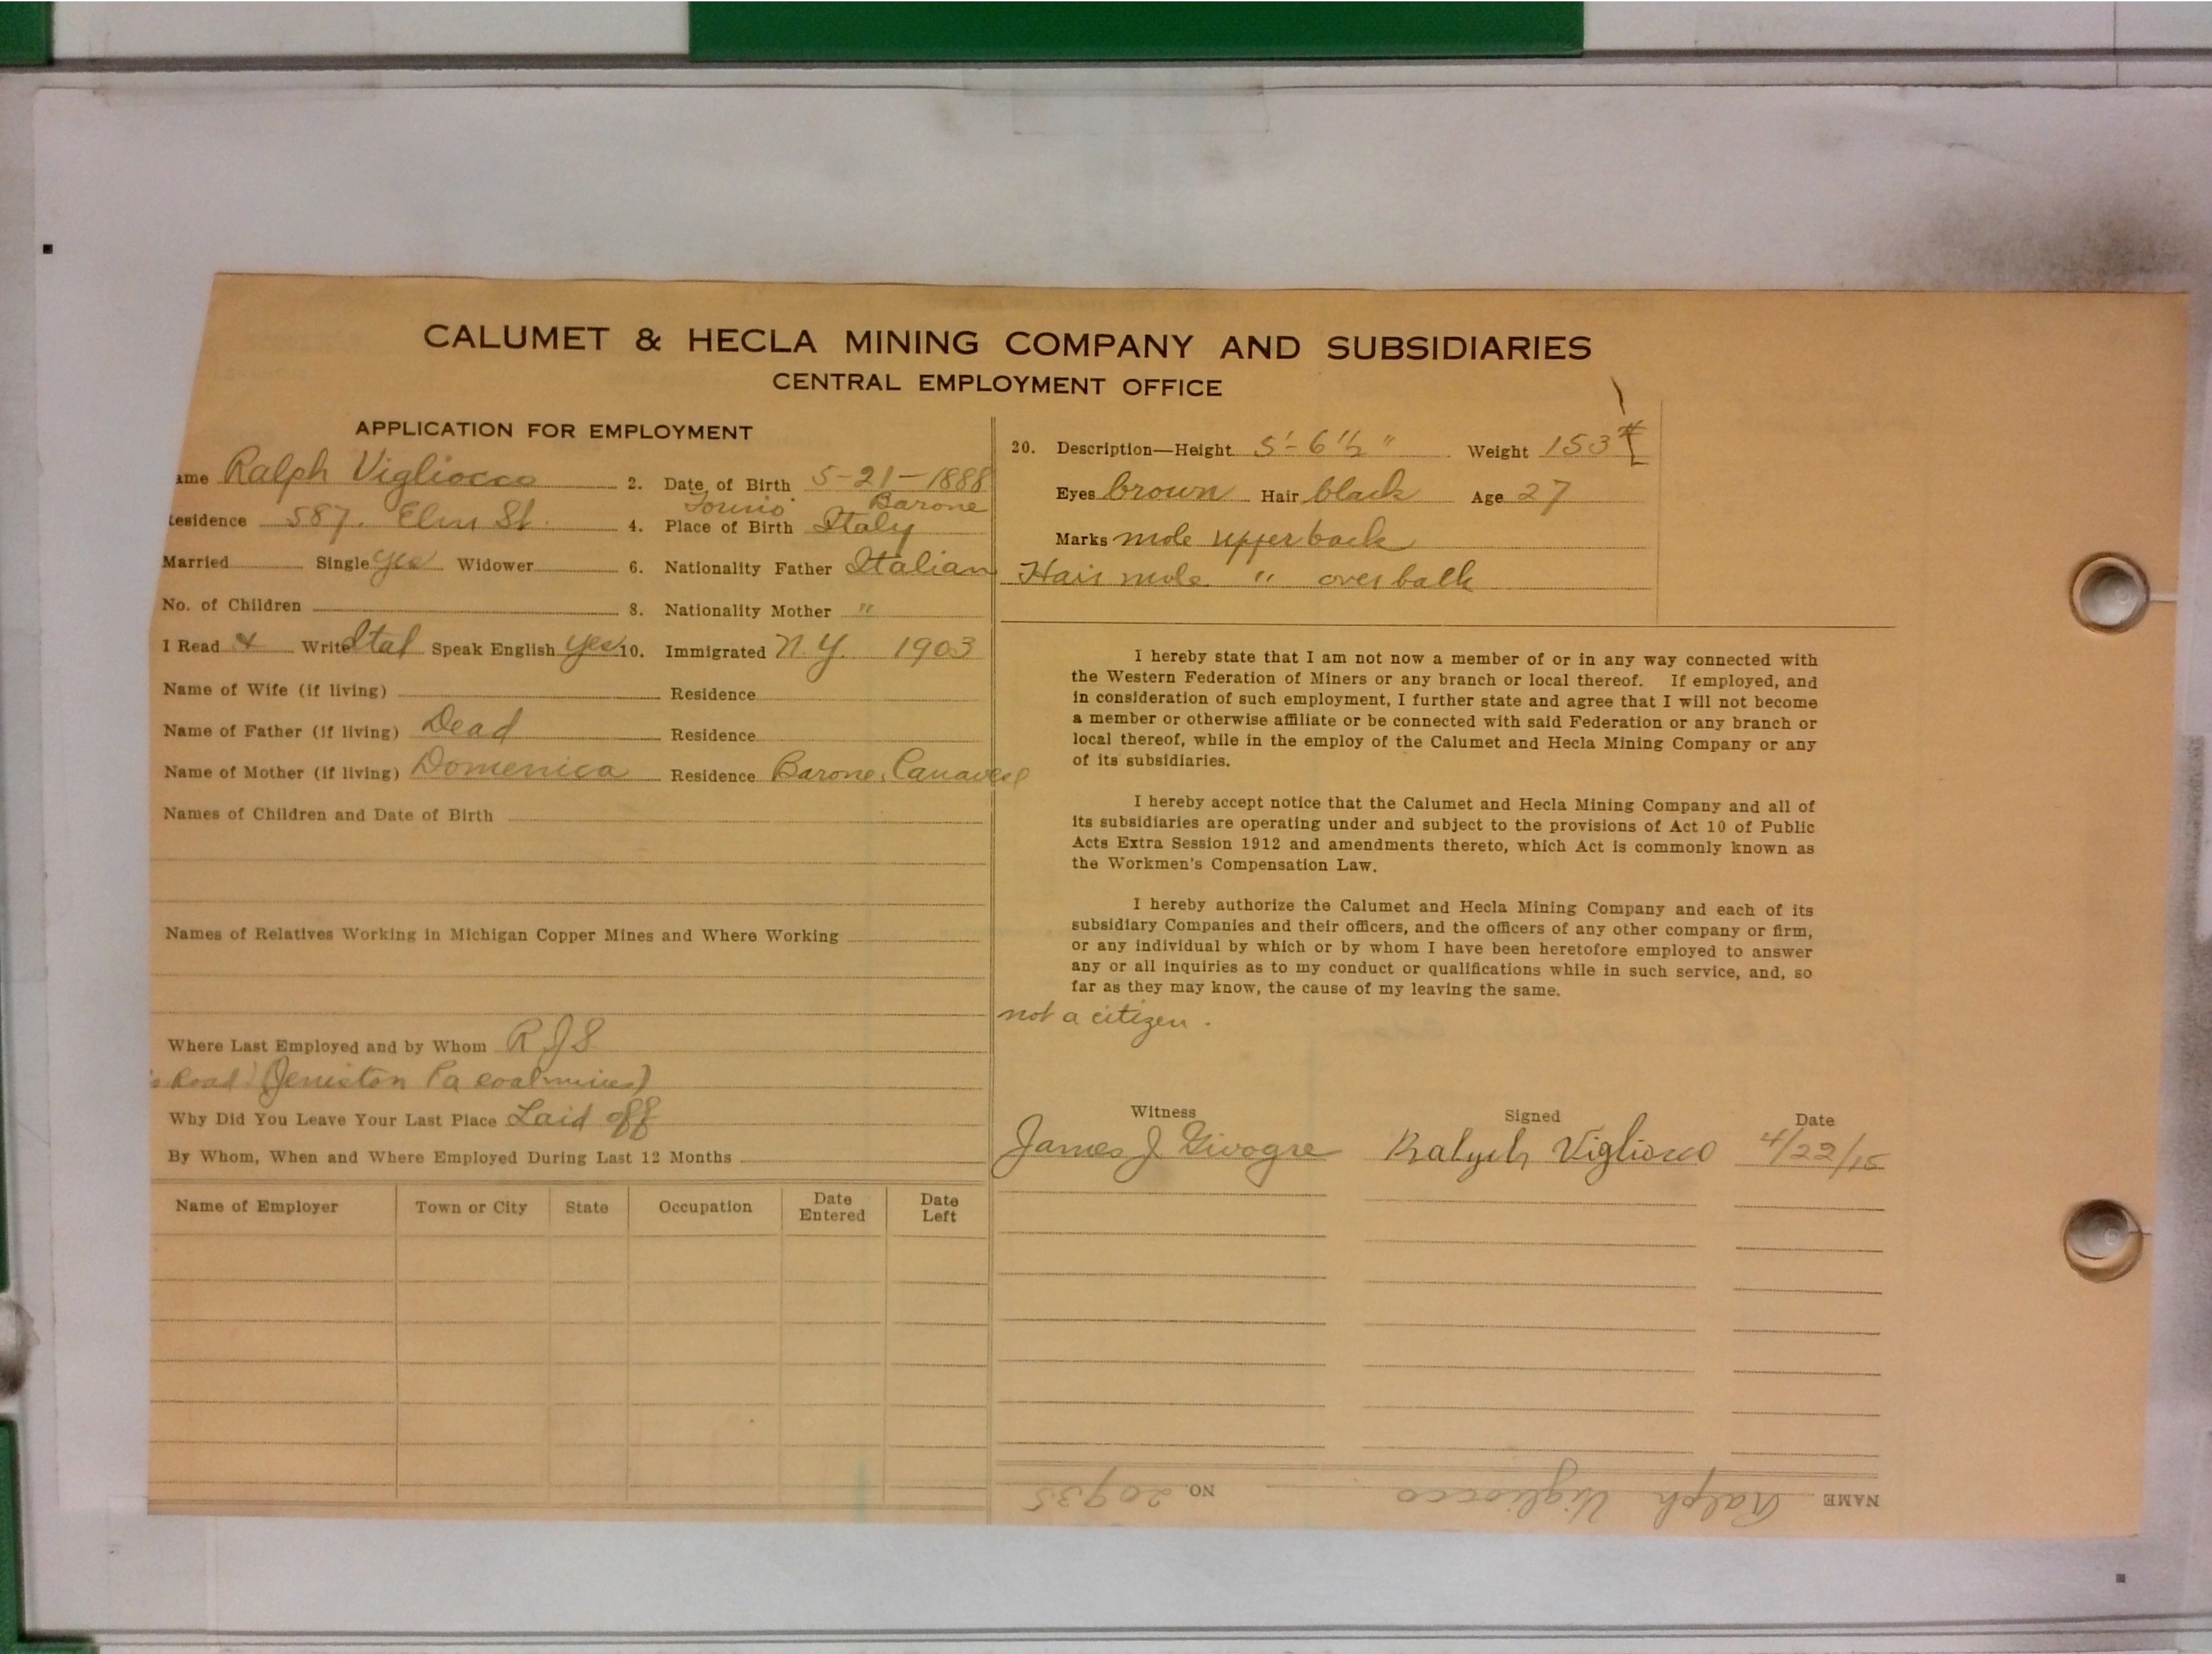 CALUMET & HECLA MINING COMPANY AND SUBSIDIARIES
CENTRAL EMPLOYMENT OFFICE
APPLICATION FOR EMPLOYMENT
ame Ralph Vigliocco 2. Date of Birth 5-21-1888
Torino Barone
esidence 587. Elm St. 4. Place of Birth Italy
Married Single yes Widower 6. Nationality Father Italian
No. of Children 8. Nationality Mother "
I Read & Write Ital Speak English yes 10. Immigrated N.Y. 1903
Name of Wife (if living) Residence
Name of Father (if living) Dead Residence
Name of Mother (if living) Domenica Residence Barone, Canavese
Names of Children and Date of Birth
Names of Relatives Working in Michigan Copper Mines and Where Working
Where Last Employed and by Whom R J S
Road (Jeniston Pa coal mines)
Why Did You Leave Your Last Place Laid off
By Whom, When and Where Employed During Last 12 Months
Name of Employer Town or City State Occupation Date Entered Date Left
20. Description—Height 5'-6 1/2" Weight 153#
Eyes brown Hair black Age 27
Marks mole upper back
Hair mole " over
I hereby state that I am not now a member of or in any way connected with
the Western Federation of Miners or any branch or local thereof. If employed, and
in consideration of such employment, I further state and agree that I will not become
a member or otherwise affiliate or be connected with said Federation or any branch or
local thereof, while in the employ of the Calumet and Hecla Mining Company or any
of its subsidiaries.
I hereby accept notice that the Calumet and Hecla Mining Company and all of
its subsidiaries are operating under and subject to the provisions of Act 10 of Public
Acts Extra Session 1912 and amendments thereto, which Act is commonly known as
the Workmen's Compensation Law.
I hereby authorize the Calumet and Hecla Mining Company and each of its
subsidiary Companies and their officers, and the officers of any other company or firm,
or any individual by which or by whom I have been heretofore employed to answer
any or all inquiries as to my conduct or qualifications while in such service, and, so
far as they may know, the cause of my leaving the same.
not a citizen.
Witness Signed Date
James J. Givogre Ralph Vigliocco 4/22/15
NAME Ralph Vigliocco NO 20935